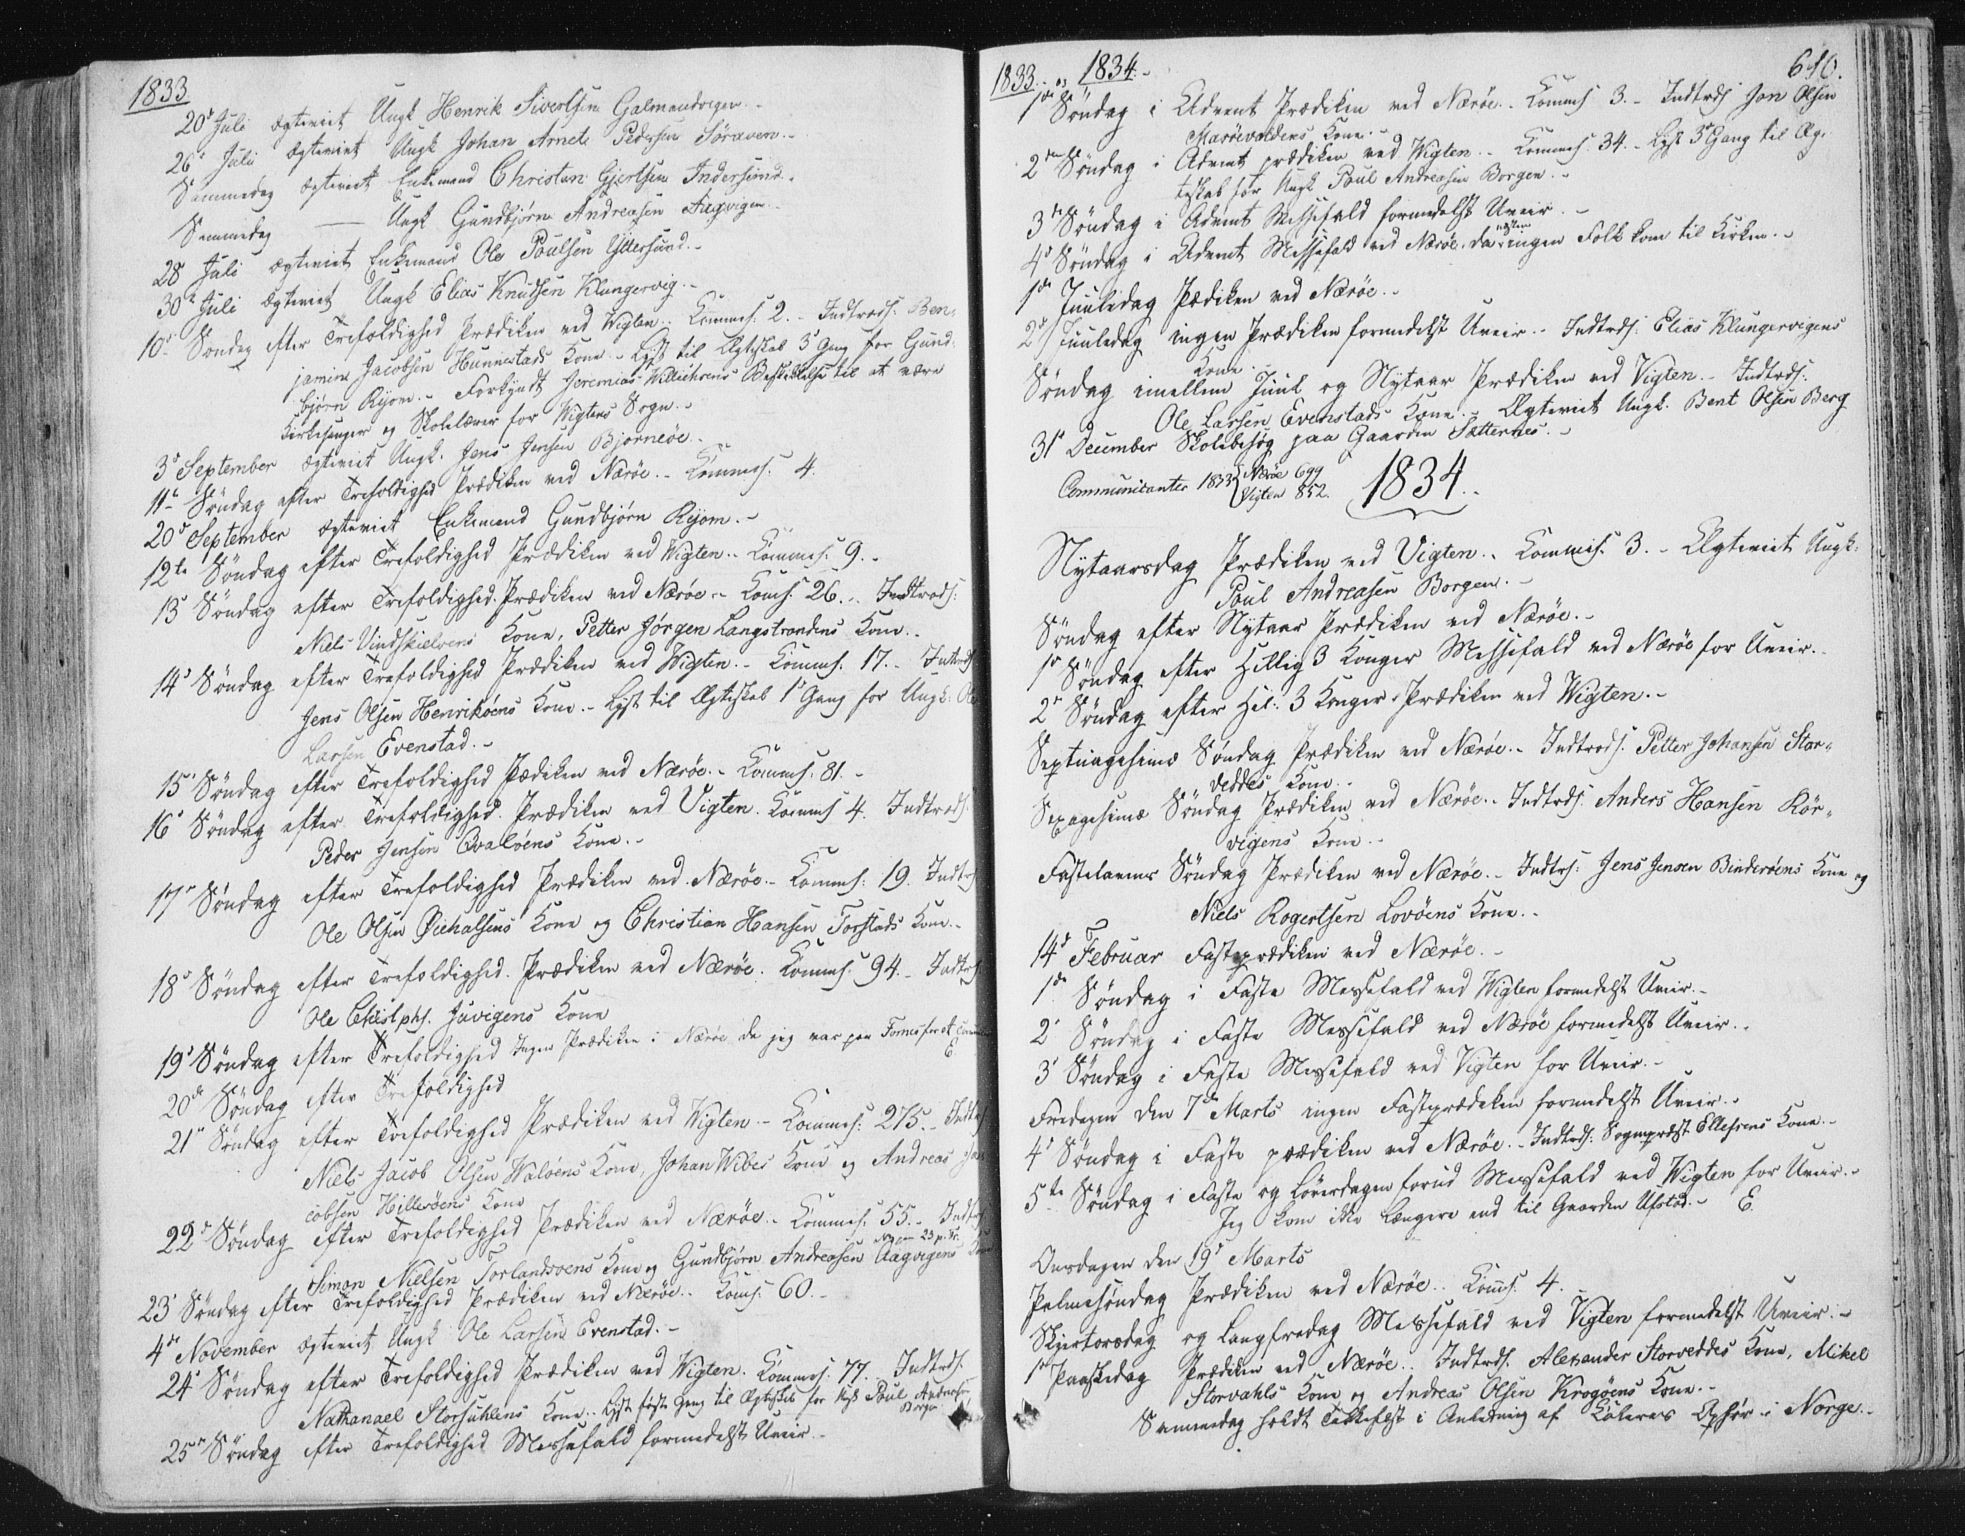 1833
20de Juli ægteviet Ungk Henrik Sivertsen Galmandvigen.-
26de Juli ægteviet Ungk Johan Arndt Pedersen Søraven.-
Sammedag ægteviet Enkemand Christen Gjertsen Indersund.
Sammedag —— Ungk Gundbjørn Andreasen Aagvigen.-
28 Juli ægteviet Enkemand Ole Poulsen Yttersund.-
30te Juli ægteviet Ungk Elias Knudsen Klungervig.-
10de Søndag efter Trefoldighed Prædiken ved Vigten.. Commes. 2.- Indtreds. Ben-
jamin Jacobsen Hunnestads Kone.- Lyst til Ægteskab 3de Gang for Gund-
bjørn Rijom.- Forkyndt Jeremias Bestikkelse til at være
Kirkesanger og Skolelærer for Vigtens Sogn.-
3de September ægteviet Ungk. Jens Jensen Bjørnøe.-
11te Søndag efter Trefoldighed Prædiken ved Nærøe.- Commes. 4.
20de September ægteviet Enkemand Gundbjørn Rijom.-
12te Søndag efter Trefoldighed Prædiken ved Vigten.. Commes. 9.-
13de Søndag efter Trefoldighed. Prædiken ved Nærøe.- Comes. 26.. Indtreds:
Niels Vindskielvens Kone, Petter Jørgen Langstrandens Kone.-
14de Søndag efter Trefoldighed Prædiken ved Wigten.- Commes. 17.- Indtreds
Jens Olsen Henrikøens Kone.- Lyst til Ægteskab 1de Gang for Ungk: Ole
Larsen Evenstad.-
15de Søndag efter Trefoldighed Prædiken ved Nærøe.- Commes. 81.-
16de Søndag efter Trefoldighed. Prædiken ved Vigten. Commes 4. Indtreds.
Peder Jensen Qvaløens Kone.-
17de Søndag efter Trefoldighed Prædiken ved Nærøe.- Commes: 19. Indtrs
Ole Olsen Øiehalsens Kone og Christian Hansen Torstads Kone.-
18de Søndag efter Trefoldighed. Prædiken ved Nærøe. Commes. 94.- Indtrs.
Ole Christphs. Juvigens Kone
19de Søndag efter Trefoldighed Ingen Prædiken i Nærøe, da jeg var paa Fornes for at
E.
20de Søndag efter Trefoldighed
21de Søndag efter Trefoldighed Prædiken ved Wigten.- Commes: 275.- Indtrs
Niels Jacob Olsen Waløens Kone, Johan Wibes Kone og Andreas Ja-
cobsen Hillerøens Kone
22de Søndag efter Trefoldighed Prædiken ved Nærøe.- Commes. 55.- Indtrs.
Simon Nielsen Torlandsøens Kone og Gundbjørn Andreasen Aagvigens Kone
23de Søndag efter Trefoldighed Prædiken ved Nærøe.. Comes. 60.-
4de November ægteviet Ungk Ole Larsen Evenstad.-
24de Søndag efter Trefoldighed Prædiken ved Wigten. Commes. 77. Indtreds.
Nathanael Storsuhlens Kone.. Lyst første Gang til Ægteskab for Ungk Poul Andreasen
Borgen
25de Søndag efter Trefoldighed Messefald formedelst Uveir.-
1833.- og 1834.- 610.
1ste Søndag i Advent Prædiken ved Nærøe.- Commes 3.- Indtreds Jon Olsen
Marøevaldens Kone.-
2den Søndag i Advent prædiken ved Wigten.- Commes. 34.- Lyst 3de Gang til Æg-
teskab for Ungk Poul Andreasen Borgen.-
3de Søndag i Advent Messefald formedelst Uveir.-
4de Søndag i Advent Messefald ved Nærøe. da næsten ingen Folk kom til Kirken.-
1ste Juuledag Prædiken ved Nærøe.-
2de Juuledag ingen Prædiken formedelst Uveir.- Indtreds. Elias Klungervigens
Kone.-
Søndag imellem Juul og Nytaar Prædiken ved Vigten.- Indtreds:
Ole Larsen Evenstads Kone.- Ægteviet Ungk. Bent Olsen Berg
31te December Skolebesøg paa Gaarden Sætternes.-
Communicanter 1833 { Nærøe 699
Vigten 852.
1834.
Nytaarsdag Prædiken ved Vigten.. Commes. 3.- Ægteviet Ungk:
Poul Andreasen Borgen.-
Søndag efter Nytaar Prædiken ved Nærøe.-
1ste Søndag efter Hellig 3 Konger Messefald ved Nærøe for Uveir.-
2de Søndag efter Hel: 3 Konger Prædiken ved Wigten.-
Septuagesimæ Søndag Prædiken ved Nærøe.- Indtreds. Petter Johansen Stor-
veddes Kone.-
Sexagesimæ Søndag Prædiken ved Nærøe.. Indtreds. Anders Hansen Rør-
vigens Kone.-
Fastelavens Søndag Prædiken ved Nærøe.- Indtrs: Jens Jensen Binderøens Kone og
Niels Rogertsen Lovøens Kone.-
14de Februar Fasteprædiken ved Nærøe.-
1ste Søndag i Faste Messefald ved Wigten formedelst Uveir.-
2de Søndag i Faste Messefald ved Nærøe formedelst Uveir.-
3de Søndag i Faste Messefald ved Vigten for Uveir.-
Fredagen den 7de Marts ingen Fasteprædiken formedelst Uveir.-
4de Søndag i Faste prædiken ved Nærøe.- Indtreds: Sognepræst Ellefsens Kone.-
5te Søndag i Faste og Løverdagen forud Messefald ved Wigten for Uveir.-
Jeg kom ikke længere end til Gaarden Ufstad.- E.
Onsdagen den 19de Marts
Palmesøndag Prædiken ved Nærøe.. Comes. 4.
Skjertorsdag og Langfredag Messefald ved Vigten formedelst Uveir.-
1ste Paaskedag Prædiken ved Nærøe.. Indtreds. Alexander Storveddes Kone, Mikel
Storvahls Kone og Andreas Olsen Krogøens Kone.-
Sammedag holdt Takkefest i Anledning af Coleras Ophør i Norge.-